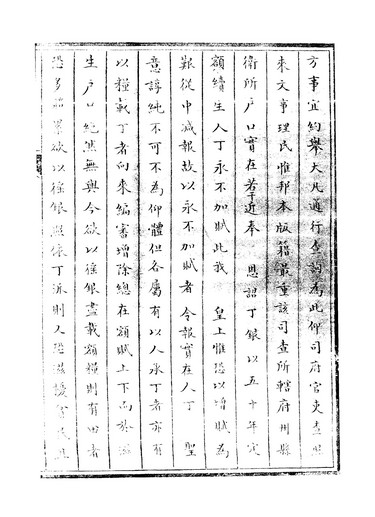 方事宜約舉大凡通行查詢為此仰司府官吏查照
來文事理民惟邦本版籍最重該司查所轄府州縣
衛所户口實在若干近奉 恩詔丁銀以五十年定
額續生人丁永不加賦此我 皇上惟恐以增賦為
艱從中減報故以永不加賦者令報實在人丁 聖
意諄純不可不為仰體但各屬有以人承丁者亦有
以糧載丁者向來編審增除總在額賦上下而於滋
生户口絶無與今欲以徭銀盡載額糧則有田者
恐多 欲以徭銀照依丁派則人恐滋擾